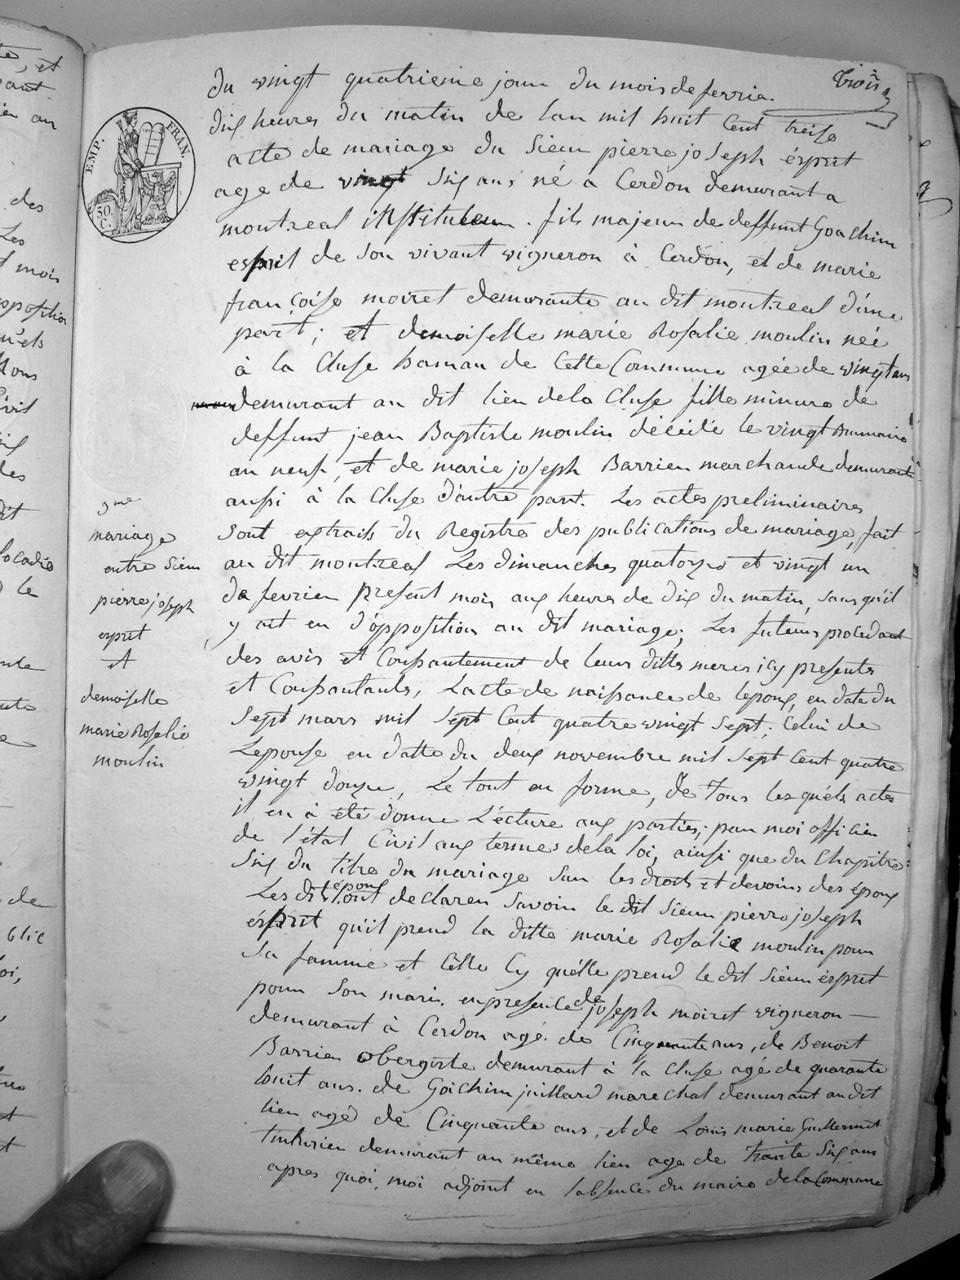 Trois
EMP. FRAN.
50 C.
du vingt quatrieme jour du mois de fevrier
dix heures du matin de lan mil huit Cent treise
acte de mariage du Sieur pierre joseph ésprit
age de vingt Six ans né a Cerdon demurant a
montreal instituteur . fils majeur de deffunt Goachim
esprit de Son vivant vigneron à Cerdon, et de marie
françoise moiret demurante au dit montreal d'une
part ; et demoiselle marie Rosalie moulin née
à la Cluse hamau de Cette Commune agée de vingt ans
demurant au dit lieu de la Cluse fille minure de
deffunt jean Baptiste moulin décédé le vingt Brumaire
an neuf, et de marie joseph Barrien marchande demurante
aussi à la Cluse d'autre part. Les actes preliminaires
Sont extraits du Registre des publications de mariage, fait
au dit montreal Les dimanches quatorze et vingt un
de fevrier present mois aux heures de dix du matin, sans qu'il
y ait eu d'opposition au dit mariage; Les futeurs procedant
des avis et Consantement de leurs dittes meres icy presente
et Consantants, L'acte de naissance de lepoux, en date du
Sept mars mil Sept Cent quatre vingt Sept; Celui de
Lepouse en datte du deux novembre mil Sept Cent quatre
vingt douze, Le tout en forme, de Tous les quels actes
il en à été donné Lécture aux parties, par moi officier
de l'état Civil aux termes de la loi, ainsi que du Chapitre
Six du titre du mariage Sur les droits et devoirs des époux
Les dit époux ont declarer Savoir le dit Sieur pierre joseph
ésprit qu'il prend la ditte marie Rosalie moulin pour
Sa famme et Celle Cy qu'elle prend le dit Sieur ésprit
pour Son mari. en presence de joseph moiret vigneron
demurant à Cerdon agé de Cinquante ans, de Benoit
Barrien obergiste demurant à la Cluse agé de quarante
huit ans. de Goichim juillard marechal demurant au dit
lieu agé de Cinquante ans, et de Louis marie Guillermet
tinturier demurant au même lieu age de trante Six ans
apres quoi, moi adjoint en l'absence du maire de la Commune
9me
mariage
entre Sieur
pierre joseph
esprit
et
demoiselle
marie Rosalie
moulin